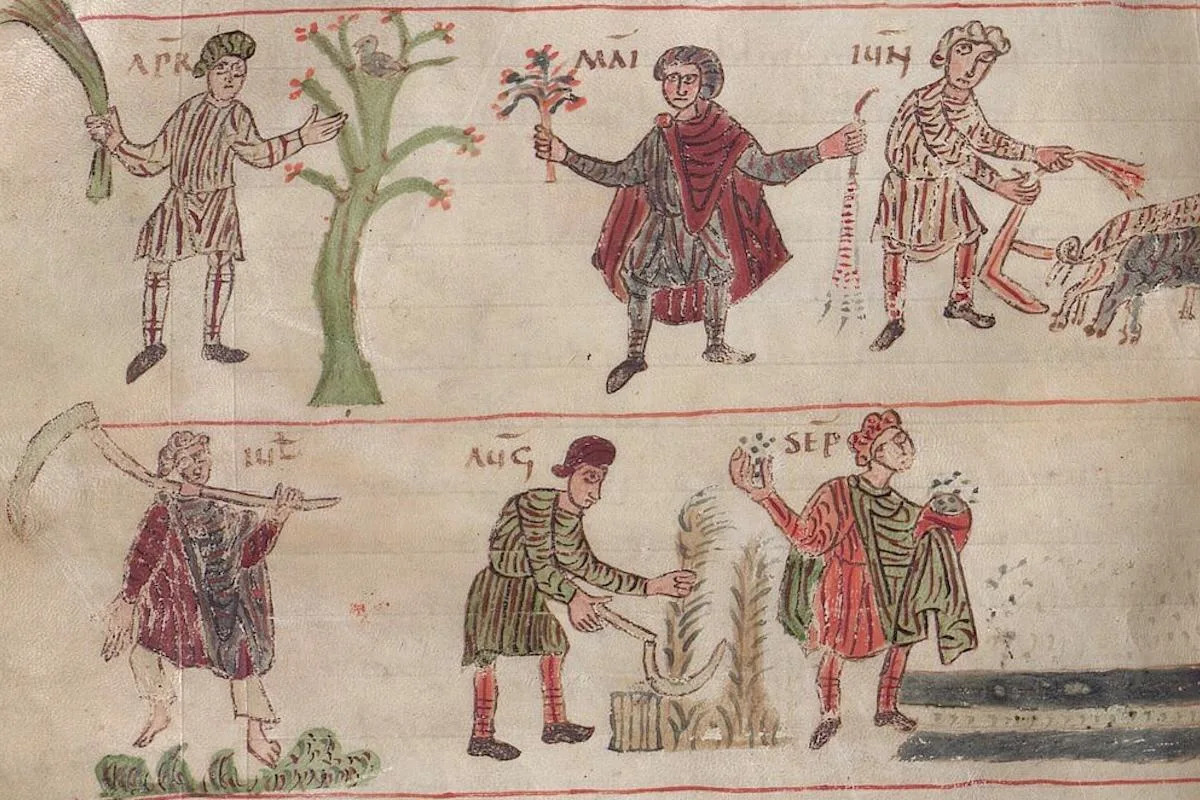 APR̄
MĀI
IŪN
IUL̄
AŪG
SEP̄